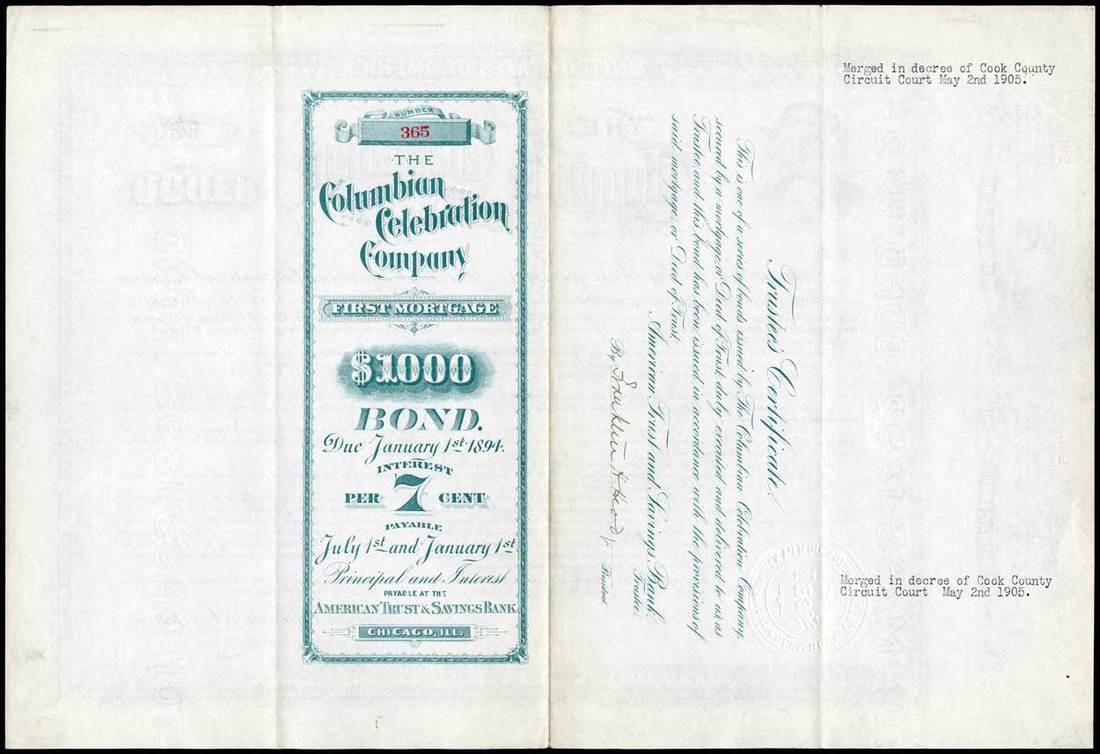 NUMBER
365
THE
Columbian
Celebration
Company
FIRST MORTGAGE
$1000
BOND.
Due January 1st 1894.
INTEREST
PER 7 CENT
PAYABLE
July 1st and January 1st
Principal and Interest
PAYABLE AT THE
AMERICAN TRUST & SAVINGS BANK
CHICAGO, ILL.
Trustee's Certificate.
This is one of a series of bonds issued by The Columbian Celebration Company,
secured by a mortgage or Deed of Trust, duly executed and delivered to us, as
Trustee and this bond has been issued in accordance with the provisions of
said mortgage or Deed of Trust.
American Trust and Savings Bank
Trustee
By
President
Merged in decree of Cook County
Circuit Court May 2nd 1905.
Merged in decree of Cook County
Circuit Court May 2nd 1905.